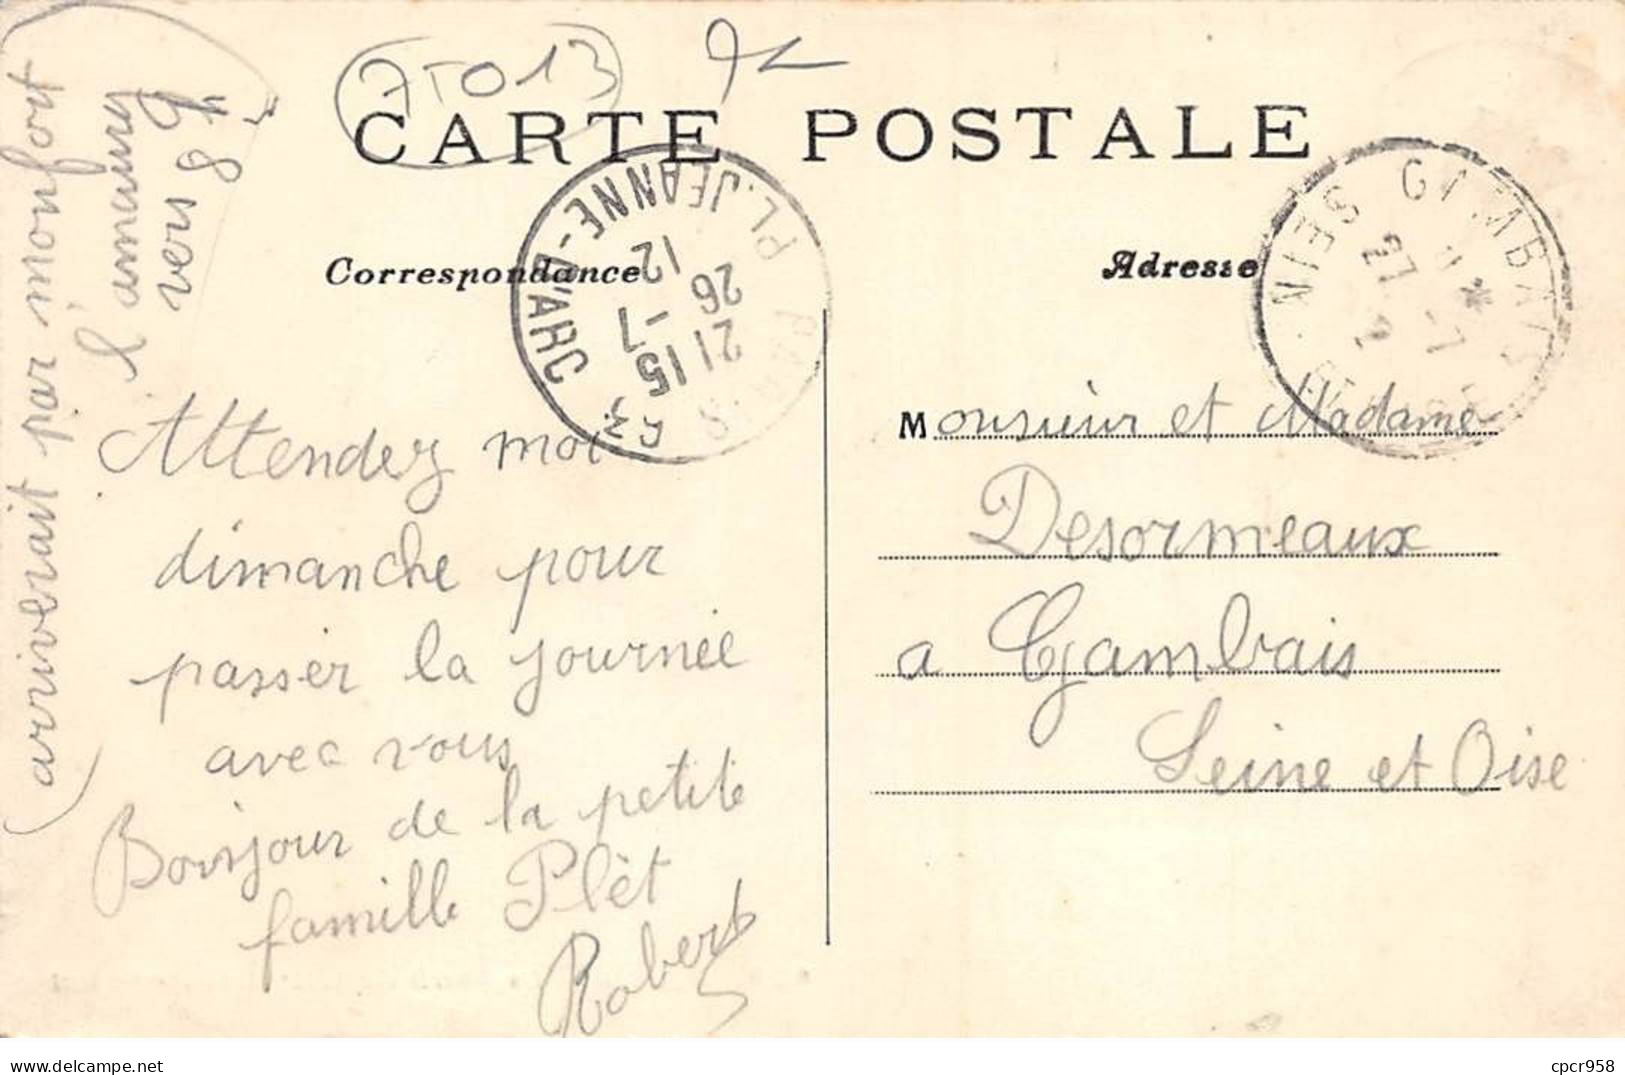 75013
CARTE POSTALE
Correspondance
Adresse
PL. JEANNE-D'ARC
2115
26 -7
12
GAMBAIS
27 -7
SEINE
Attendez moi
dimanche pour
passer la journée
avec vous
Bonjour de la petite
famille Plèt
Robert
arriverait par monfort
l'amaury
vers 8h
Monsieur et Madame
Desormeaux
a Gambais
Seine et Oise
delcampe.net
cpcr958